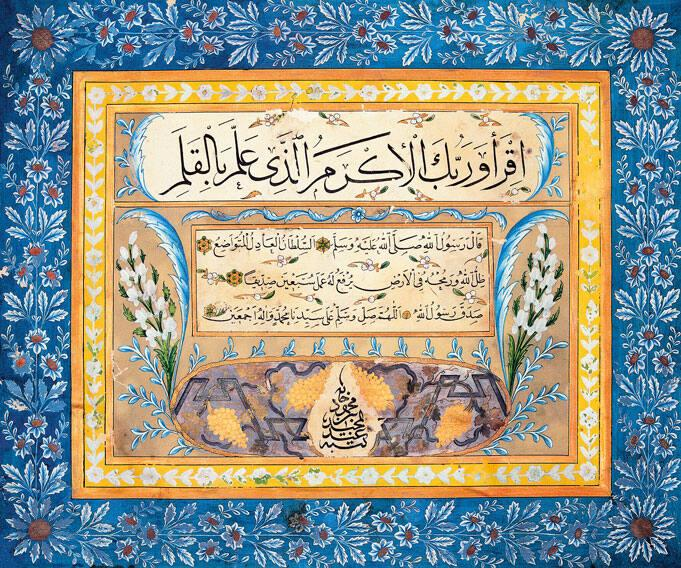 اقرأ وربك الأكرم الذي علم بالقلم
قال رسول الله صلى الله عليه وسلم السلطان العادل المتواضع
ظل الله ورمحه في الأرض يرفع له عمل سبعين صديقا
صدق رسول الله اللهم صل وسلم على سيدنا محمد وآله أجمعين
كتبه عبد المجيد بن محمود خان